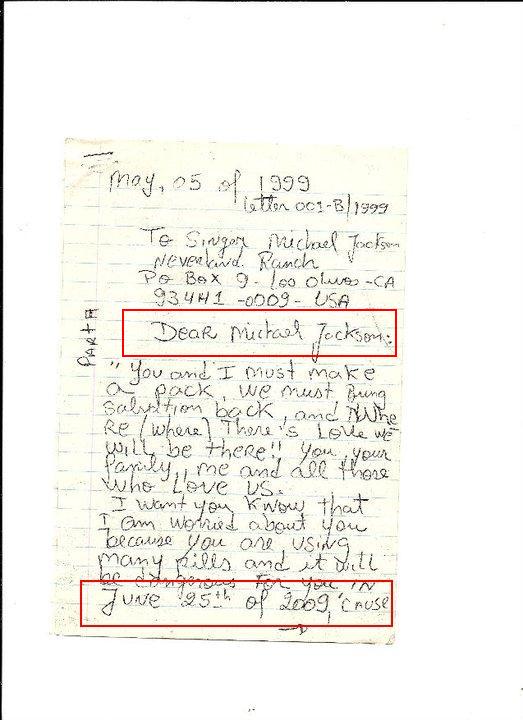 May, 05 of 1999
Letter 001-B/1999
To Singer Michael Jackson
Neverland Ranch
PO BOX 9- Los Olivos -CA
934H1 -0009- USA
PART I
DEAR Michael Jackson:
"You and I must make
a pack, we must Bring
salvation back, and Whe
Re (where) There's Love we
will be there!! you, your
family, me and all those
who Love us.
I want you Know that
I am worried about you
because you are using
many pills and it will
be dangerous for you in
June 25th of 2009, 'CAUSE